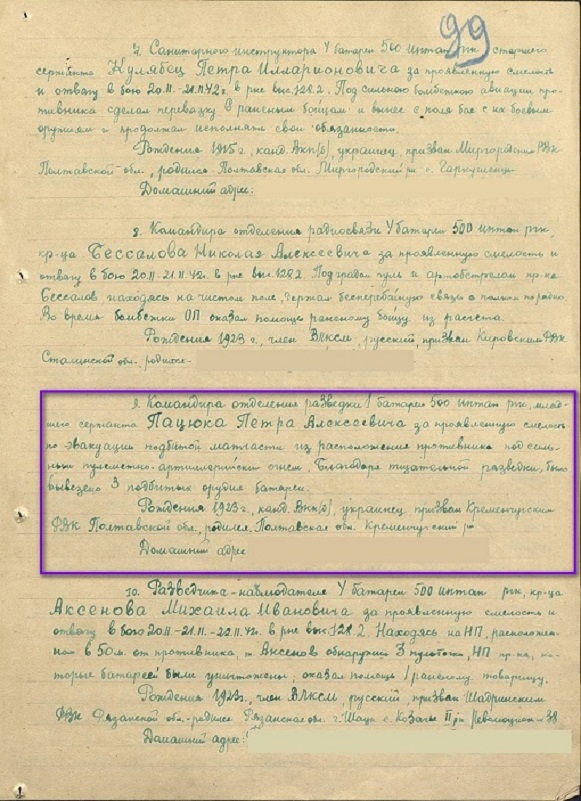 99
7. Санитарного инструктора V батареи 500 иптап ргк, старшего
сержанта Кулябец Петра Илларионовича за проявленную смелость
и отвагу в бою 20.11.-21.11.42г. в р-не выс. 128.2. Под сильной бомбежкой авиации про-
тивника сделал перевязку раненым бойцам и вынес с поля боя с их боевым
оружием и продолжал исполнять свои обязанности.
Рождения 1915г, канд. Вкп(б), украинец, призван Миргородским РВК
Полтавской обл., родился Полтавская обл. Миргородский р-н с.
Домашний адрес:
8. Командира отделения радиосвязи V батареи 500 иптап ргк,
кр-ца Бессалова Николая Алексеевича за проявленную смелость и
отвагу в бою 20.11-21.11.42г. в р-не выс. 128.2. Под градом пуль и артобстрелом пр-ка
Бессалов находясь на чистом поле, держал бесперебойную связь в полном порядке.
Во время бомбежки ОП оказал помощь раненому бойцу из расчета.
Рождения 1923 г, член ВЛКСМ, русский, призван Кировским РВК
Сталинской обл. родился-
9. Командира отделения разведки 1 батареи 500 иптап ргк, млад-
шего сержанта Пацюка Петра Алексеевича за проявленную смелость
по эвакуации подбитой матчасти из расположения противника под силь-
ным пулеметно-артиллерийским огнем. Благодаря тщательной разведки, было
вывезено 3 подбитых орудия батареи.
Рождения 1923г, канд. Вкп(б), украинец, призван Кременчугским
РВК Полтавской обл., родился Полтавская обл. Кременчугский р-н
Домашний адрес
10. Разведчика-наблюдателя V батареи 500 иптап ргк, кр-ца
Аксенова Михаила Ивановича за проявленную смелость и
отвагу в бою 20.11.-21.11.-22.11.42г. в р-не выс. 128.2. Находясь на НП, расположен-
ном в 50 м. от противника, т. Аксенов обнаружил 3 пулеточки, НП пр-ка, ко-
торые батареей были уничтожены, оказал помощь 1 раненому товарищу.
Рождения 1923г., член ВЛКСМ, русский, призван Шадринским
РВК Рязанской обл. родился Рязанская обл. г. Шацк с. Казачья
Домашний адрес: